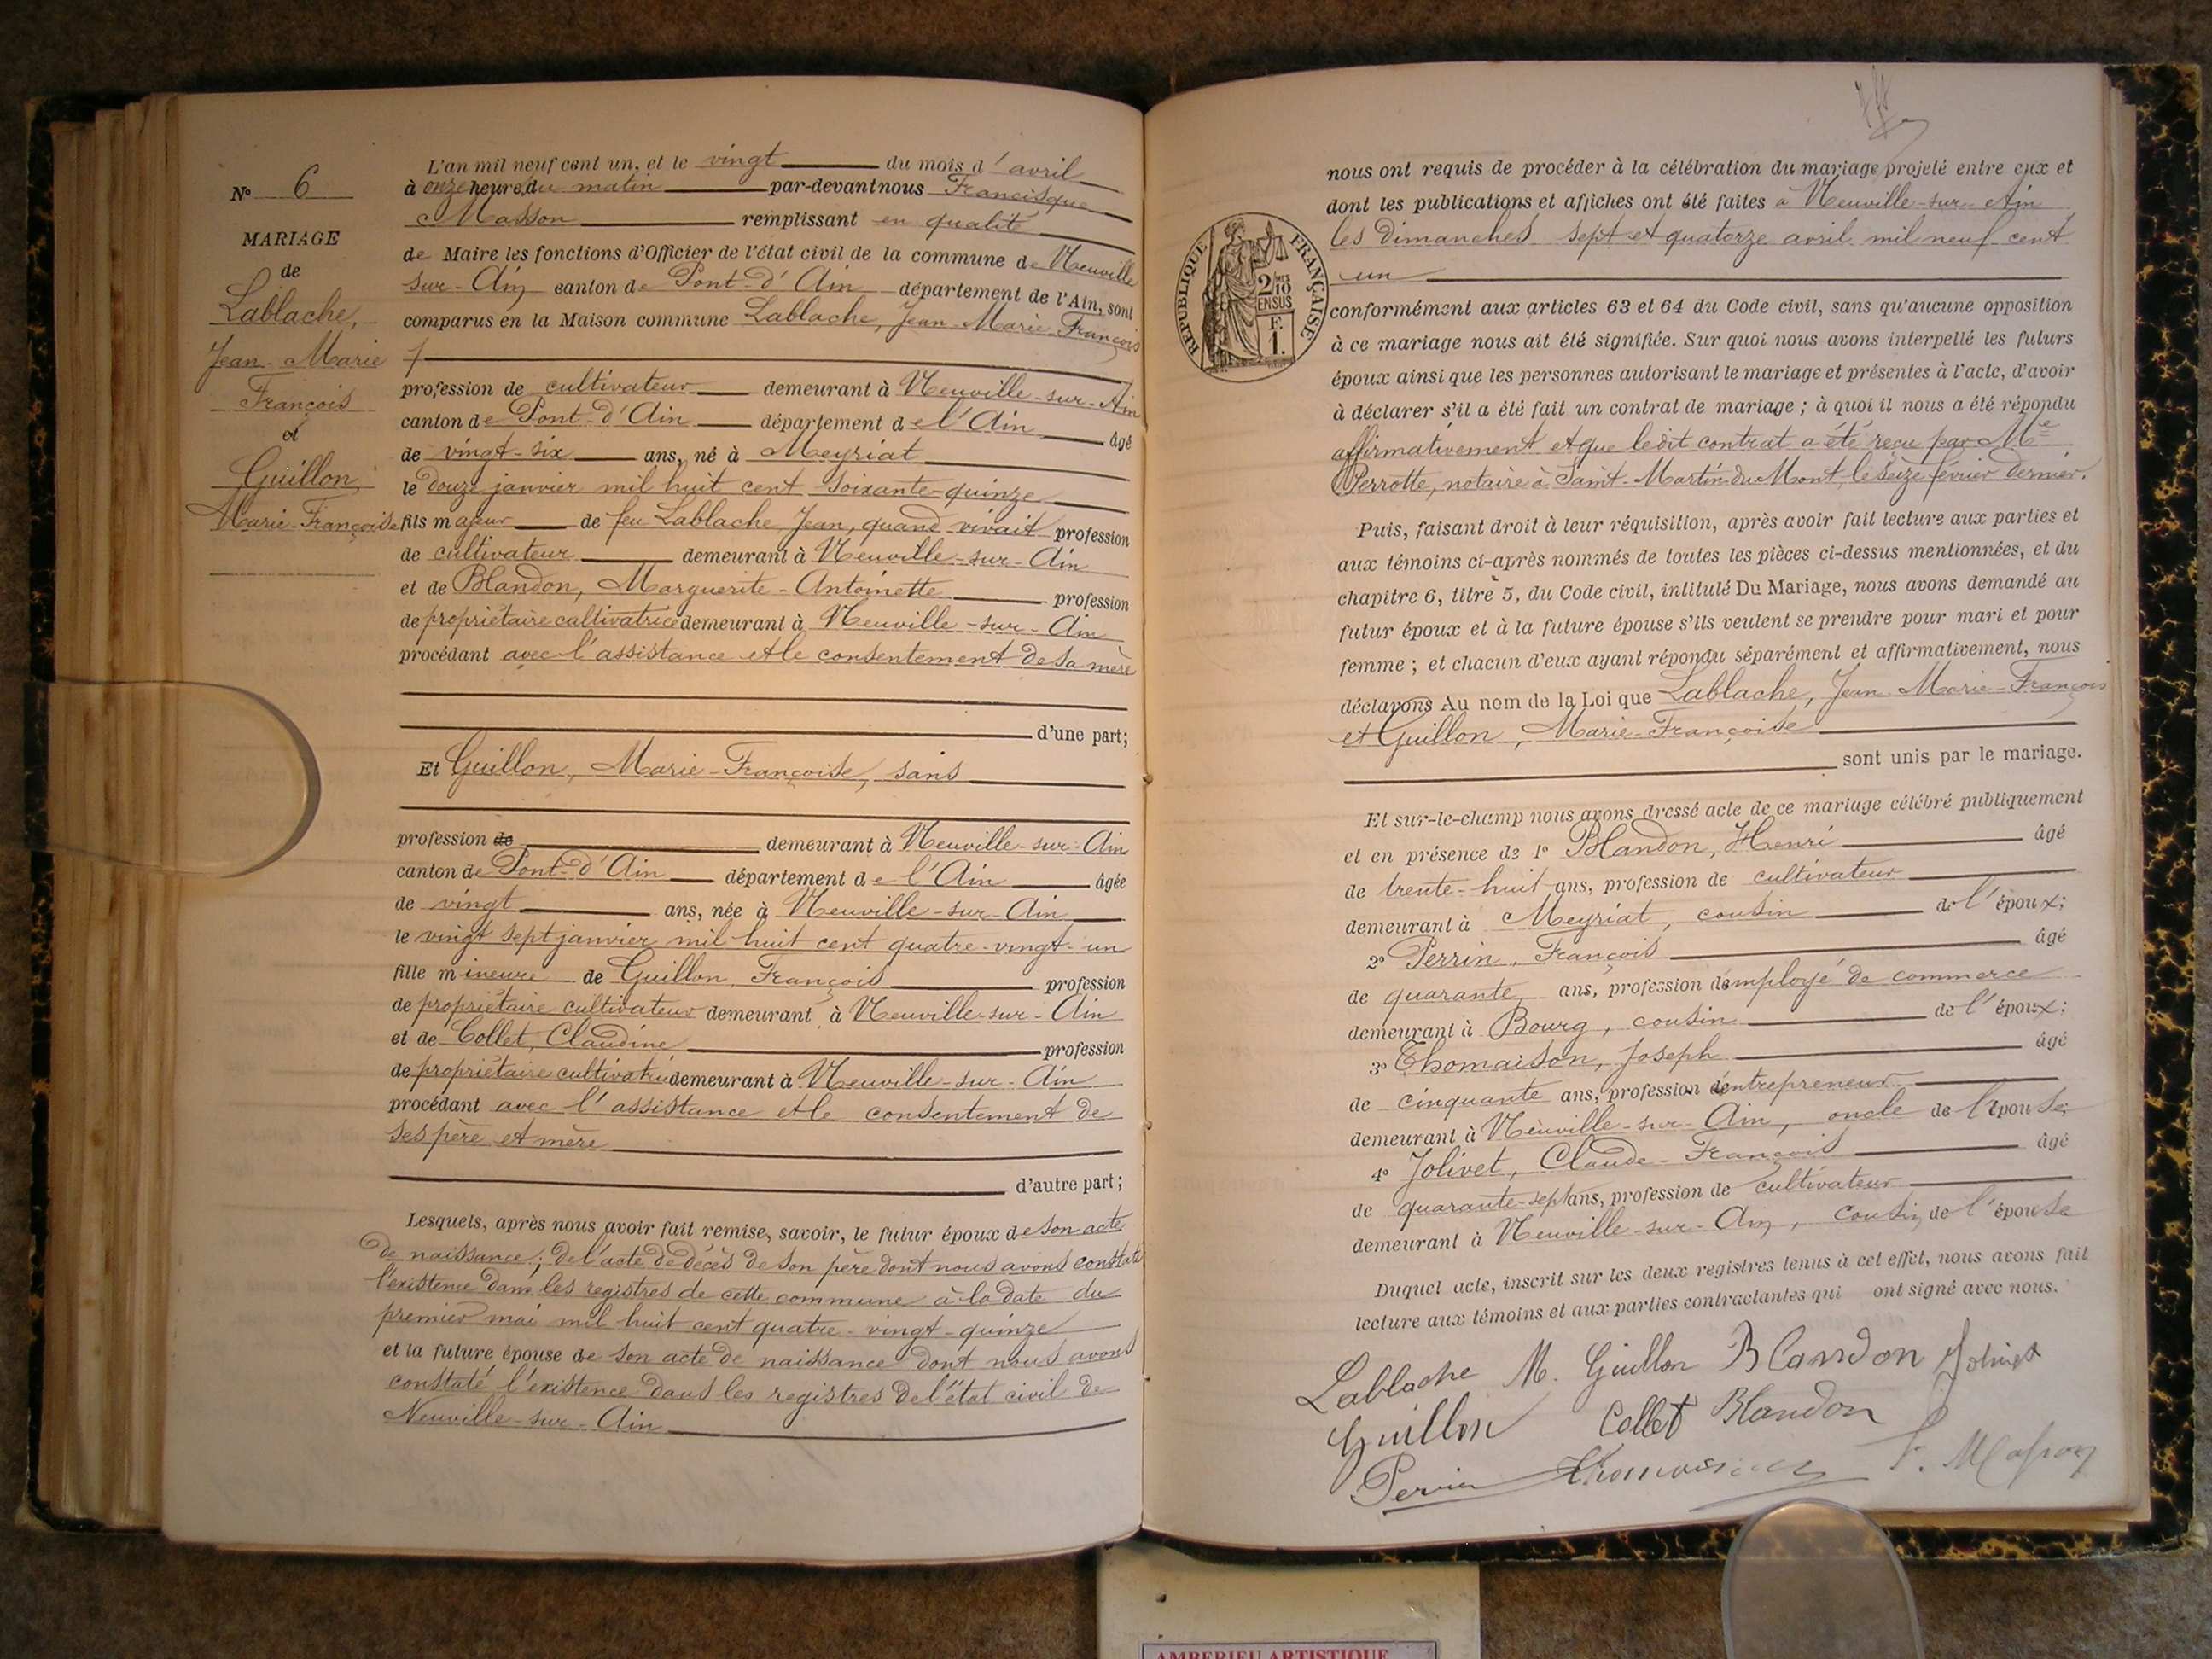 N° 6
MARIAGE
de
Lablache,
Jean-Marie
François
et
Guillon
Marie-Françoise
L'an mil neuf cent un, et le vingt du mois d'avril
à onze heure du matin par-devant nous Francisque
Masson remplissant en qualité
de Maire les fonctions d'Officier de l'état civil de la commune de Neuville
sur-Ain canton de Pont-d'Ain département de l'Ain, sont
comparus en la Maison commune Lablache, Jean-Marie-François
profession de cultivateur demeurant à Neuville-sur-Ain
canton de Pont-d'Ain département de l'Ain âgé
de vingt-six ans, né à Meyriat
le douze janvier mil huit cent soixante-quinze
fils majeur de feu Lablache Jean, quand vivait profession
de cultivateur demeurant à Neuville-sur-Ain
et de Blandon, Marguerite-Antoinette profession
de propriétaire cultivatrice demeurant à Neuville-sur-Ain
procédant avec l'assistance et le consentement de sa mère
d'une part;
Et Guillon, Marie-Françoise, sans
profession de demeurant à Neuville-sur-Ain
canton de Pont-d'Ain département de l'Ain âgée
de vingt ans, née à Neuville-sur-Ain
le vingt sept janvier mil huit cent quatre-vingt-un
fille mineure de Guillon, François profession
de propriétaire cultivateur demeurant à Neuville-sur-Ain
et de Collet, Claudine profession
de propriétaire cultivatrice demeurant à Neuville-sur-Ain
procédant avec l'assistance et le consentement de
ses père et mère
d'autre part;
Lesquels, après nous avoir fait remise, savoir, le futur époux de son acte
de naissance; de l'acte de décès de son père dont nous avons constaté
l'existence dans les registres de cette commune à la date du
premier mai mil huit cent quatre-vingt-quinze
et la future épouse de son acte de naissance dont nous avons
constaté l'existence dans les registres de l'état civil de
Neuville-sur-Ain
nous ont requis de procéder à la célébration du mariage projeté entre eux et
dont les publications et affiches ont été faites à Neuville-sur-Ain
les Dimanches sept et quatorze avril mil neuf cent
un
RÉPUBLIQUE FRANÇAISE
2/10
EN SUS
F.
1.
conformément aux articles 63 et 64 du Code civil, sans qu'aucune opposition
à ce mariage nous ait été signifiée. Sur quoi nous avons interpellé les futurs
époux ainsi que les personnes autorisant le mariage et présentes à l'acte, d'avoir
à déclarer s'il a été fait un contrat de mariage; à quoi il nous a été répondu
affirmativement et que ledit contrat a été reçu par Me
Perrotte, notaire à Saint-Martin du Mont le seize février dernier.
Puis, faisant droit à leur réquisition, après avoir fait lecture aux parties et
aux témoins ci-après nommés de toutes les pièces ci-dessus mentionnées, et du
chapitre 6, titre 5, du Code civil, intitulé Du Mariage, nous avons demandé au
futur époux et à la future épouse s'ils veulent se prendre pour mari et pour
femme; et chacun d'eux ayant répondu séparément et affirmativement, nous
déclarons Au nom de la Loi que Lablache, Jean-Marie-François
et Guillon, Marie-Françoise
sont unis par le mariage.
Et sur-le-champ nous avons dressé acte de ce mariage célébré publiquement
et en présence de 1° Blandon, Henri âgé
de trente-huit ans, profession de cultivateur
demeurant à Meyriat, cousin de l'époux;
2° Perrin, François âgé
de quarante ans, profession d'employé de commerce
demeurant à Bourg, cousin de l'époux;
3° Thomaison, Joseph âgé
de cinquante ans, profession d'entrepreneur
demeurant à Neuville-sur-Ain, oncle de l'épouse;
4° Jolivet, Claude-François âgé
de quarante-sept ans, profession de cultivateur
demeurant à Neuville-sur-Ain, cousin de l'épouse
Duquel acte, inscrit sur les deux registres tenus à cet effet, nous avons fait
lecture aux témoins et aux parties contractantes qui ont signé avec nous.
Lablache M. Guillon Blandon Jolivet
Guillon Collet Blandon
Perrin Thomaison F. Masson
AMBERIEU ARTISTIQUE